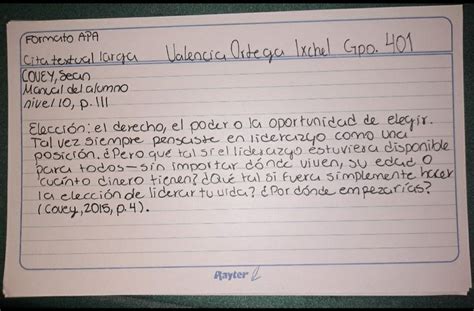 Formato APA
Cita textual larga Valencia Ortega Ixchel Gpo. 401
COVEY, Sean
Manual del alumno
nivel 10, p. 111
Elección: el derecho, el poder o la oportunidad de elegir.
Tal vez siempre pensaste en liderazgo como una
posición. ¿Pero qué tal si el liderazgo estuviera disponible
para todos—sin importar dónde viven, su edad o
cuánto dinero tienen? ¿Qué tal si fuera simplemente hacer
la elección de liderar tu vida? ¿Por dónde empezarías?
(Covey, 2015, p. 4).
Rayter